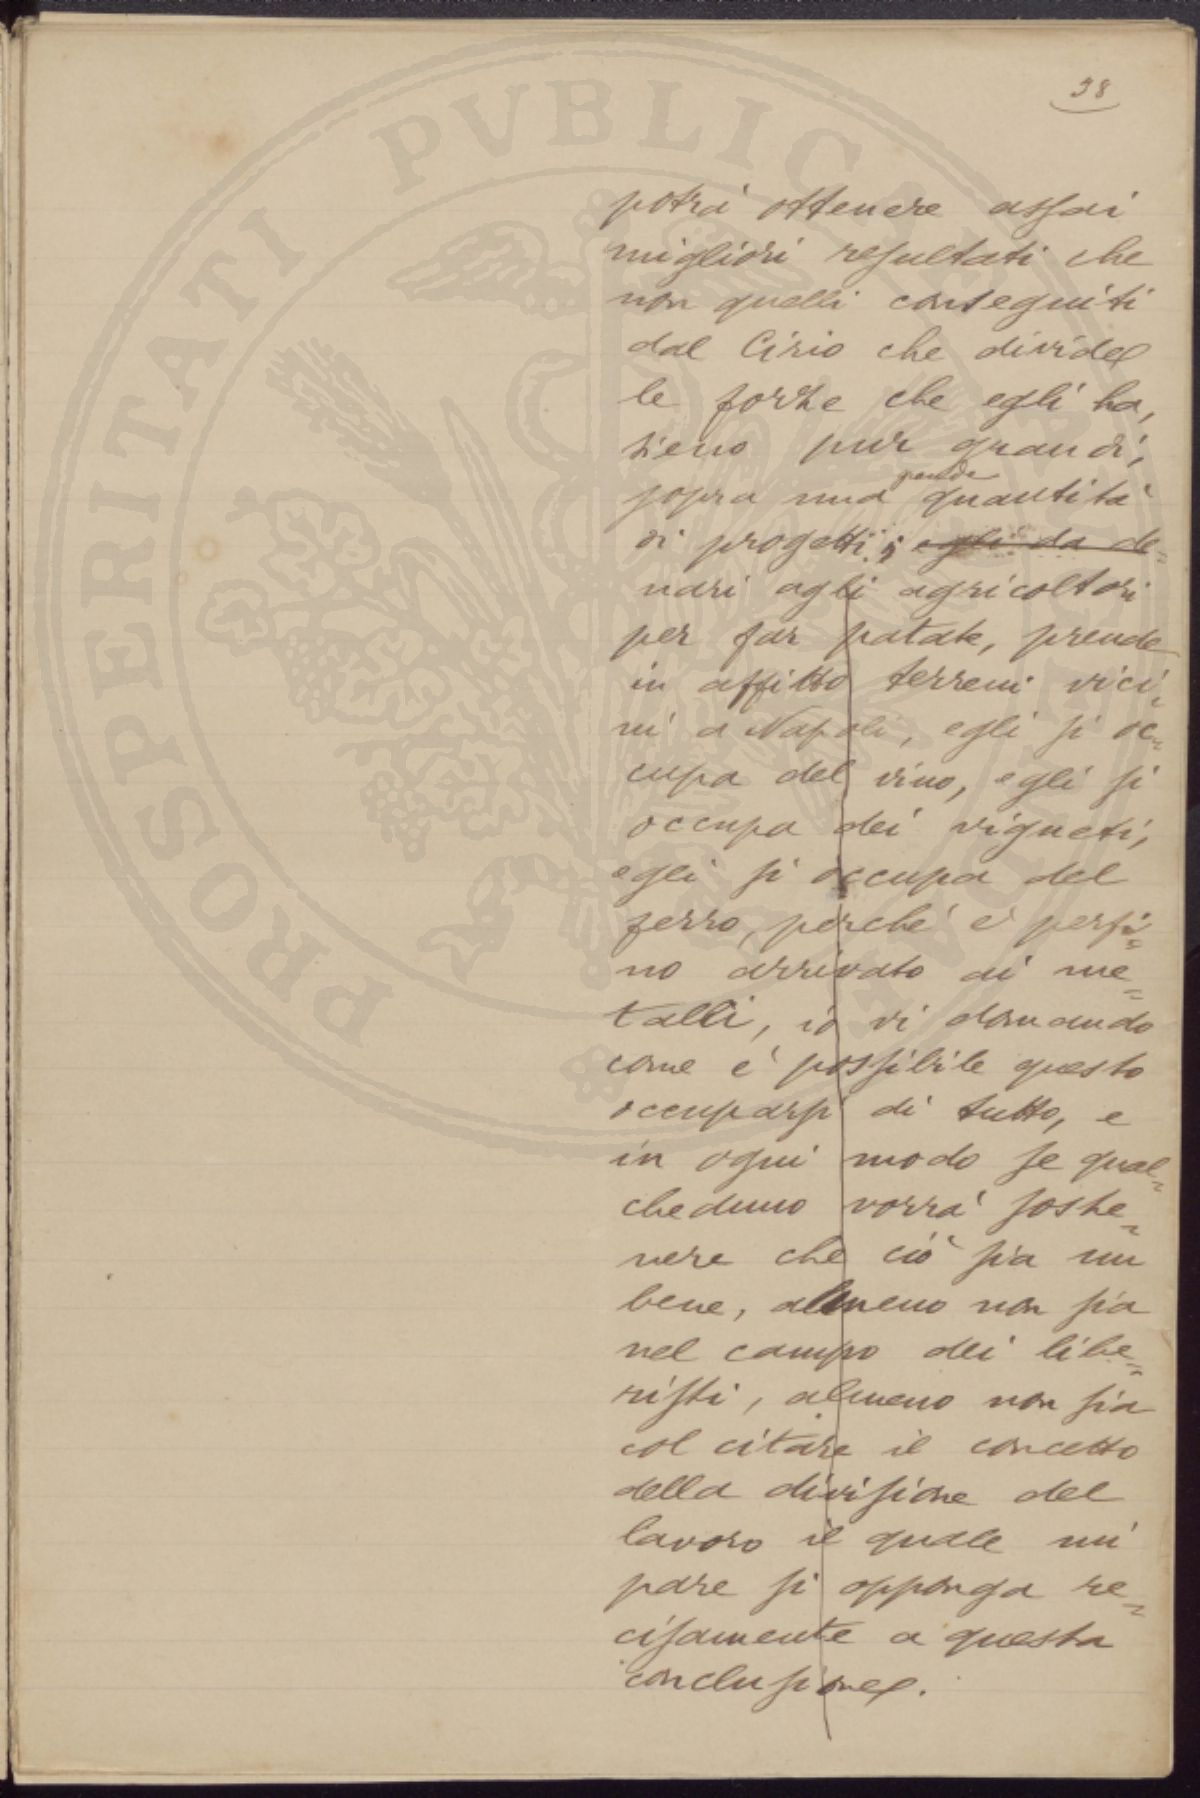 98
potrà ottenere assai
migliori resultati che
non quelli conseguiti
dal Cirio che divide
le forze che egli ha,
sieno pur grandi,
grande
sopra una quantità
di progetti; egli da de=
nari agli agricoltori
per far patate, prende
in affitto terreni vici=
ni a Napoli, egli si oc=
cupa del vino, egli si
occupa dei vigneti,
egli si occupa del
ferro, perchè è perfi=
no arrivato ai me=
talli, io vi domando
come è possibile questo
occuparsi di tutto, e
in ogni modo se qual=
cheduno vorrà soste=
nere che ciò sia un
bene, almeno non sia
nel campo dei libe=
risti, almeno non sia
col citare il concetto
della divisione del
lavoro il quale mi
pare si opponga re=
cisamente a questa
conclusione.
PROSPERITATI PVBLICAE